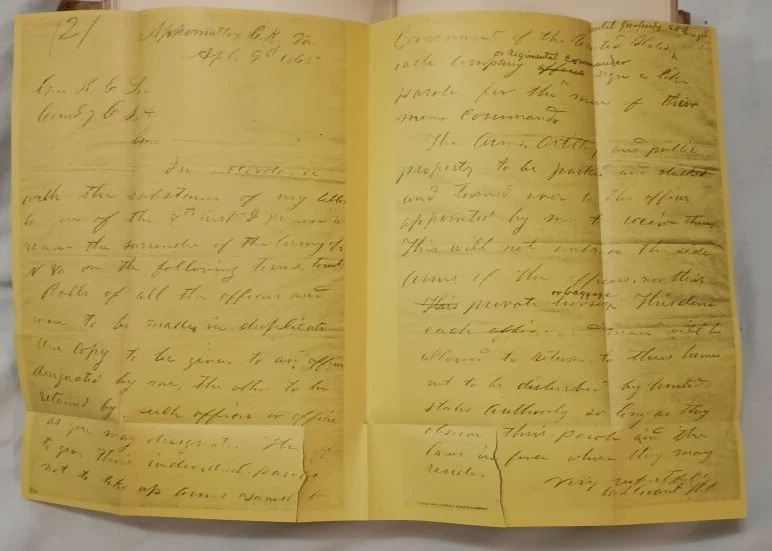 2/
Appomattox C. H. Va.
Apl. 9th 1865
Gen. R. E. Lee
Comdg C. S. A.
Gen.
In accordance
with the substance of my letter
to you of the 8th inst. I propose to
receive the surrender of the Army of
N. Va. on the following terms, to wit:
Rolls of all the officers and
men to be made in duplicate
One copy to be given to an officer
designated by me, the other to be
retained by such officer or officers
as you may designate. The
to give their individual paroles
not to take up arms against the
Government of the United States
or regimental commander
each company officer sign a like
parole for the men of their
commands
The Arms, Artillery and public
property to be parked and stacked
and turned over to the officer
appointed by me to receive them
This will not embrace the side
arms of the officers, nor their
or baggage
This private horses This done
each officer and man will be
allowed to return to their homes
not to be disturbed by United
States Authority so long as they
observe their parole and the
laws in force where they may
reside.
Very respectfully
U. S. Grant